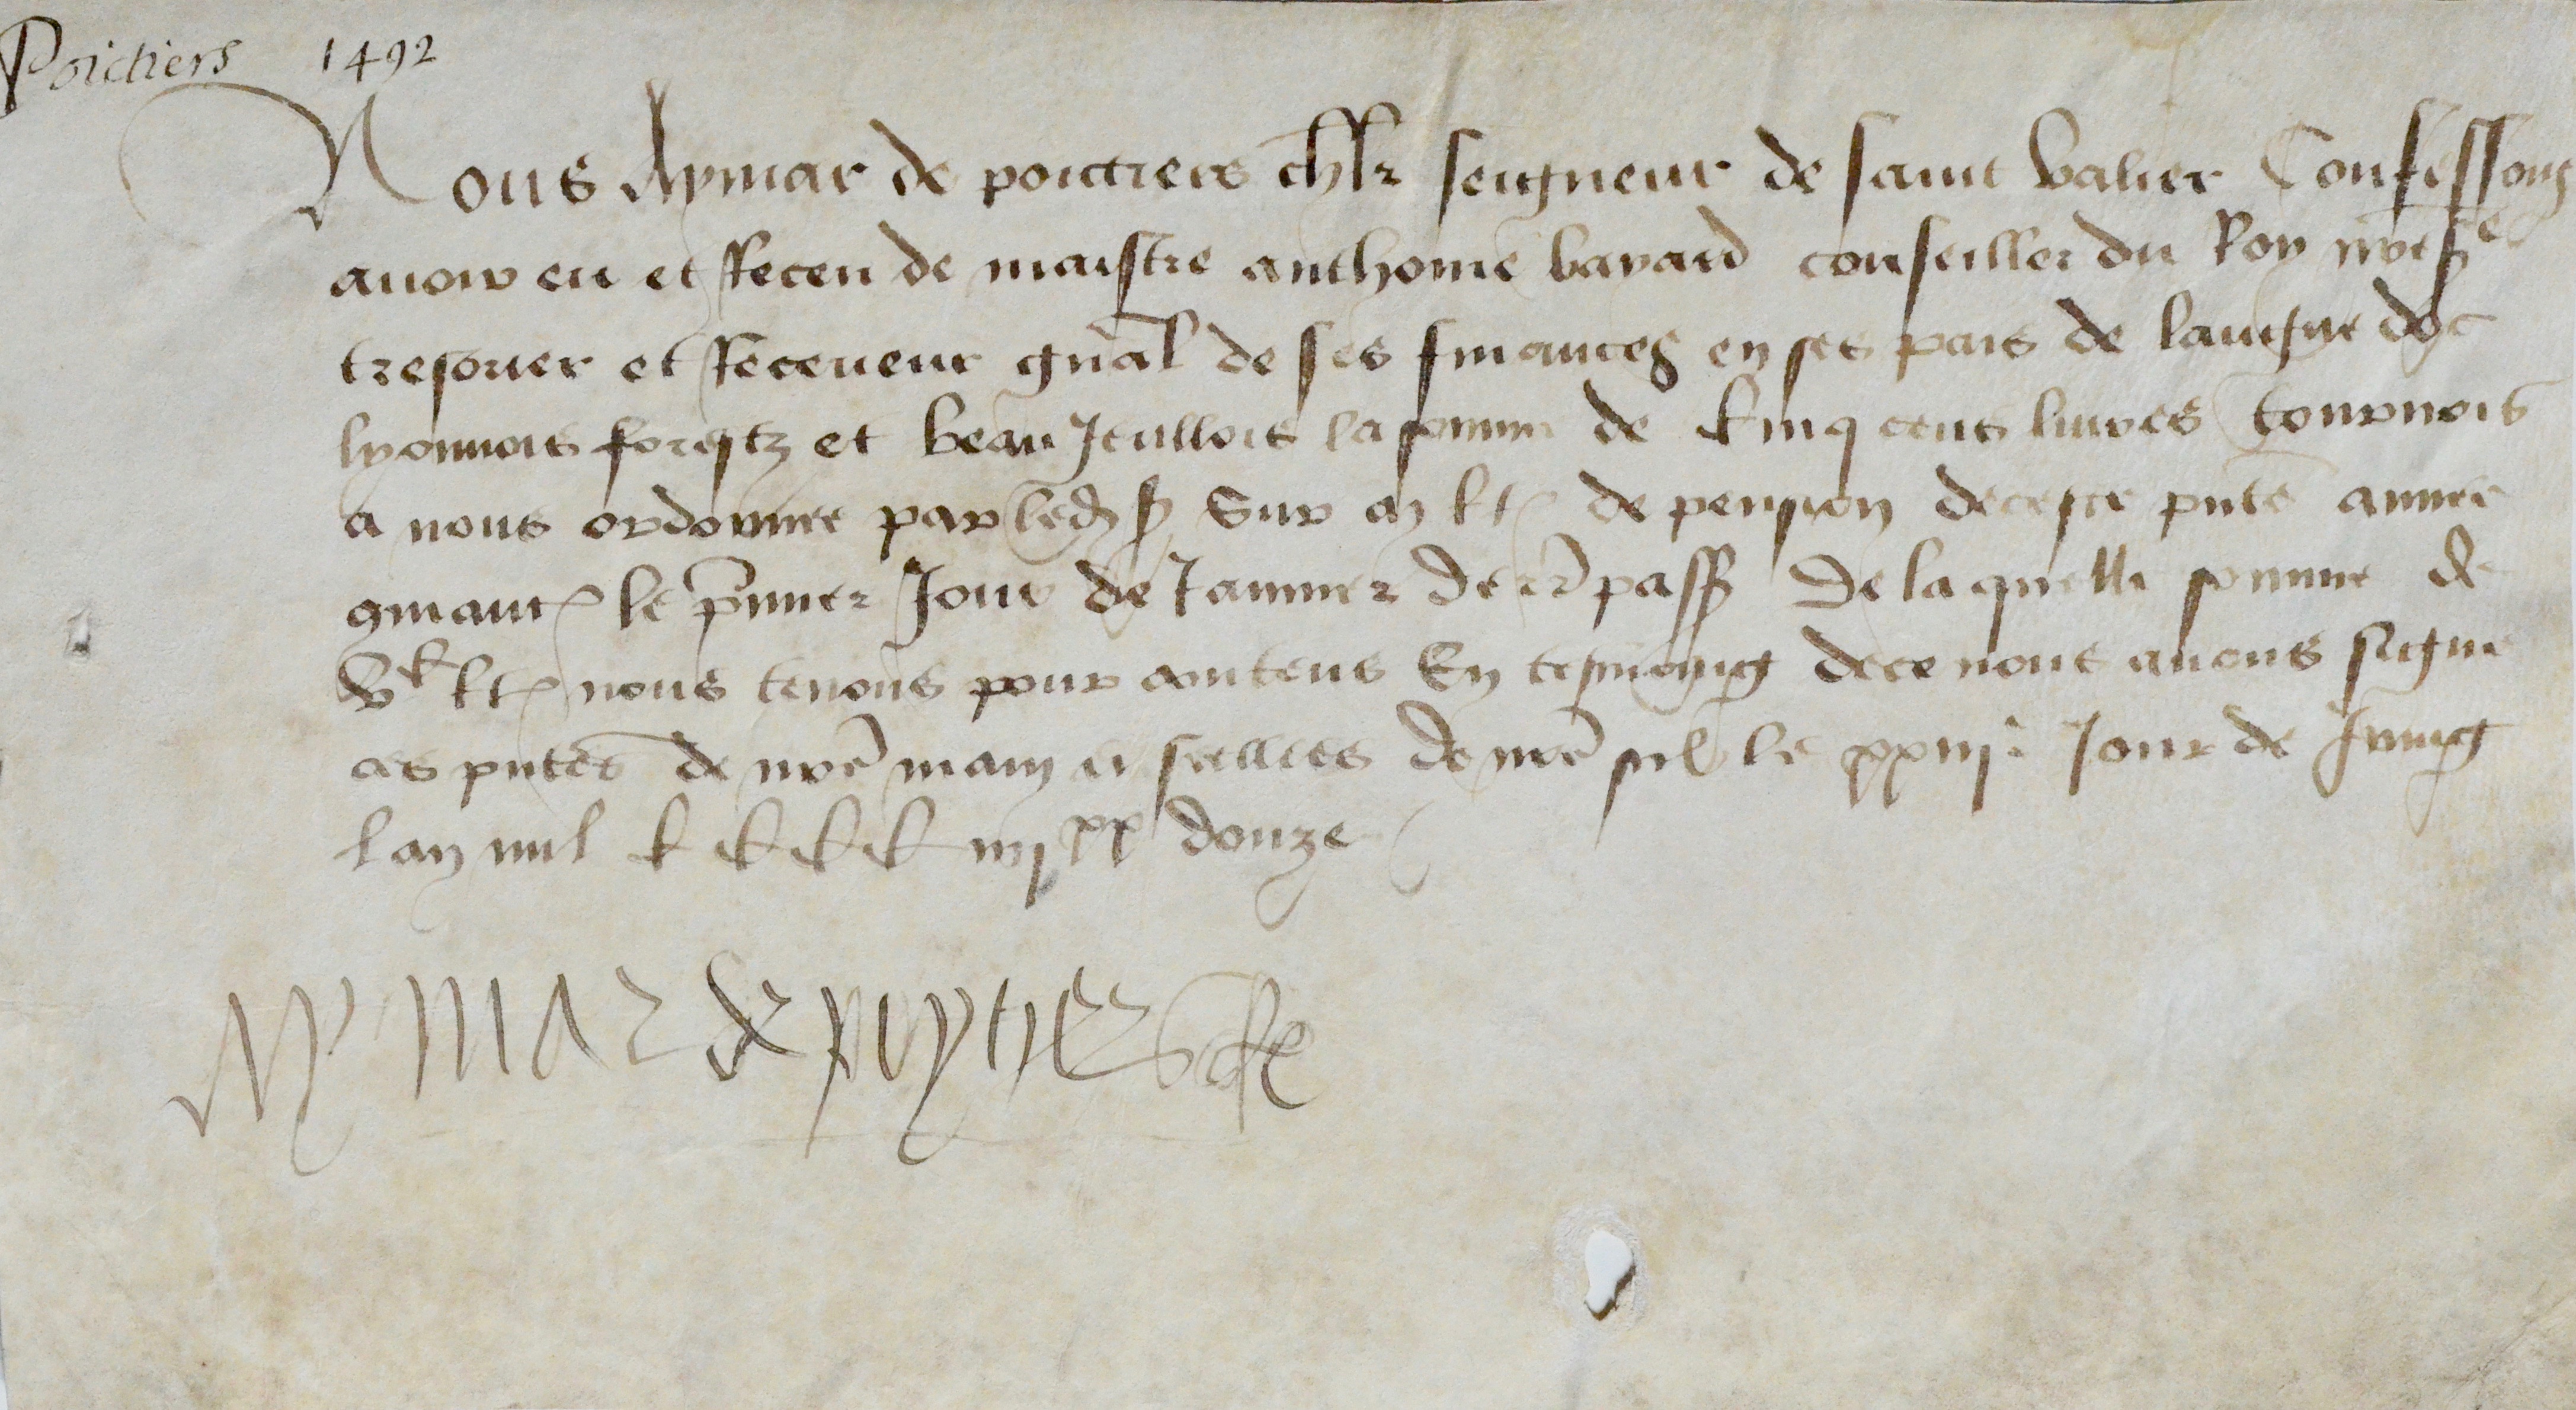 Poictiers 1492
Nous Aymar de poictiers chlr seigneur de saint valier Confessons
avoir eu et Receu de maistre anthoine bayard conseiller du Roy nre sr
tresorier et Receveur gnal de ses finances en ses pais de languedoc
lyonnois forestz et beaujeullois la somme de Cinq cens livres tournois
a nous ordonnee par led sr Sur CC lt de pension de ceste pnte annee
9manc le pmier Jour de Janvier derr passe De laquelle somme de
Vc lt nous tenons pour contens En tesmoing de ce nous avons signe
ces pntes de nre main et seellees de nre seel le xxiiije Jour de Juing
lan mil CCCC iiijxx douze
Aymar de poytiers